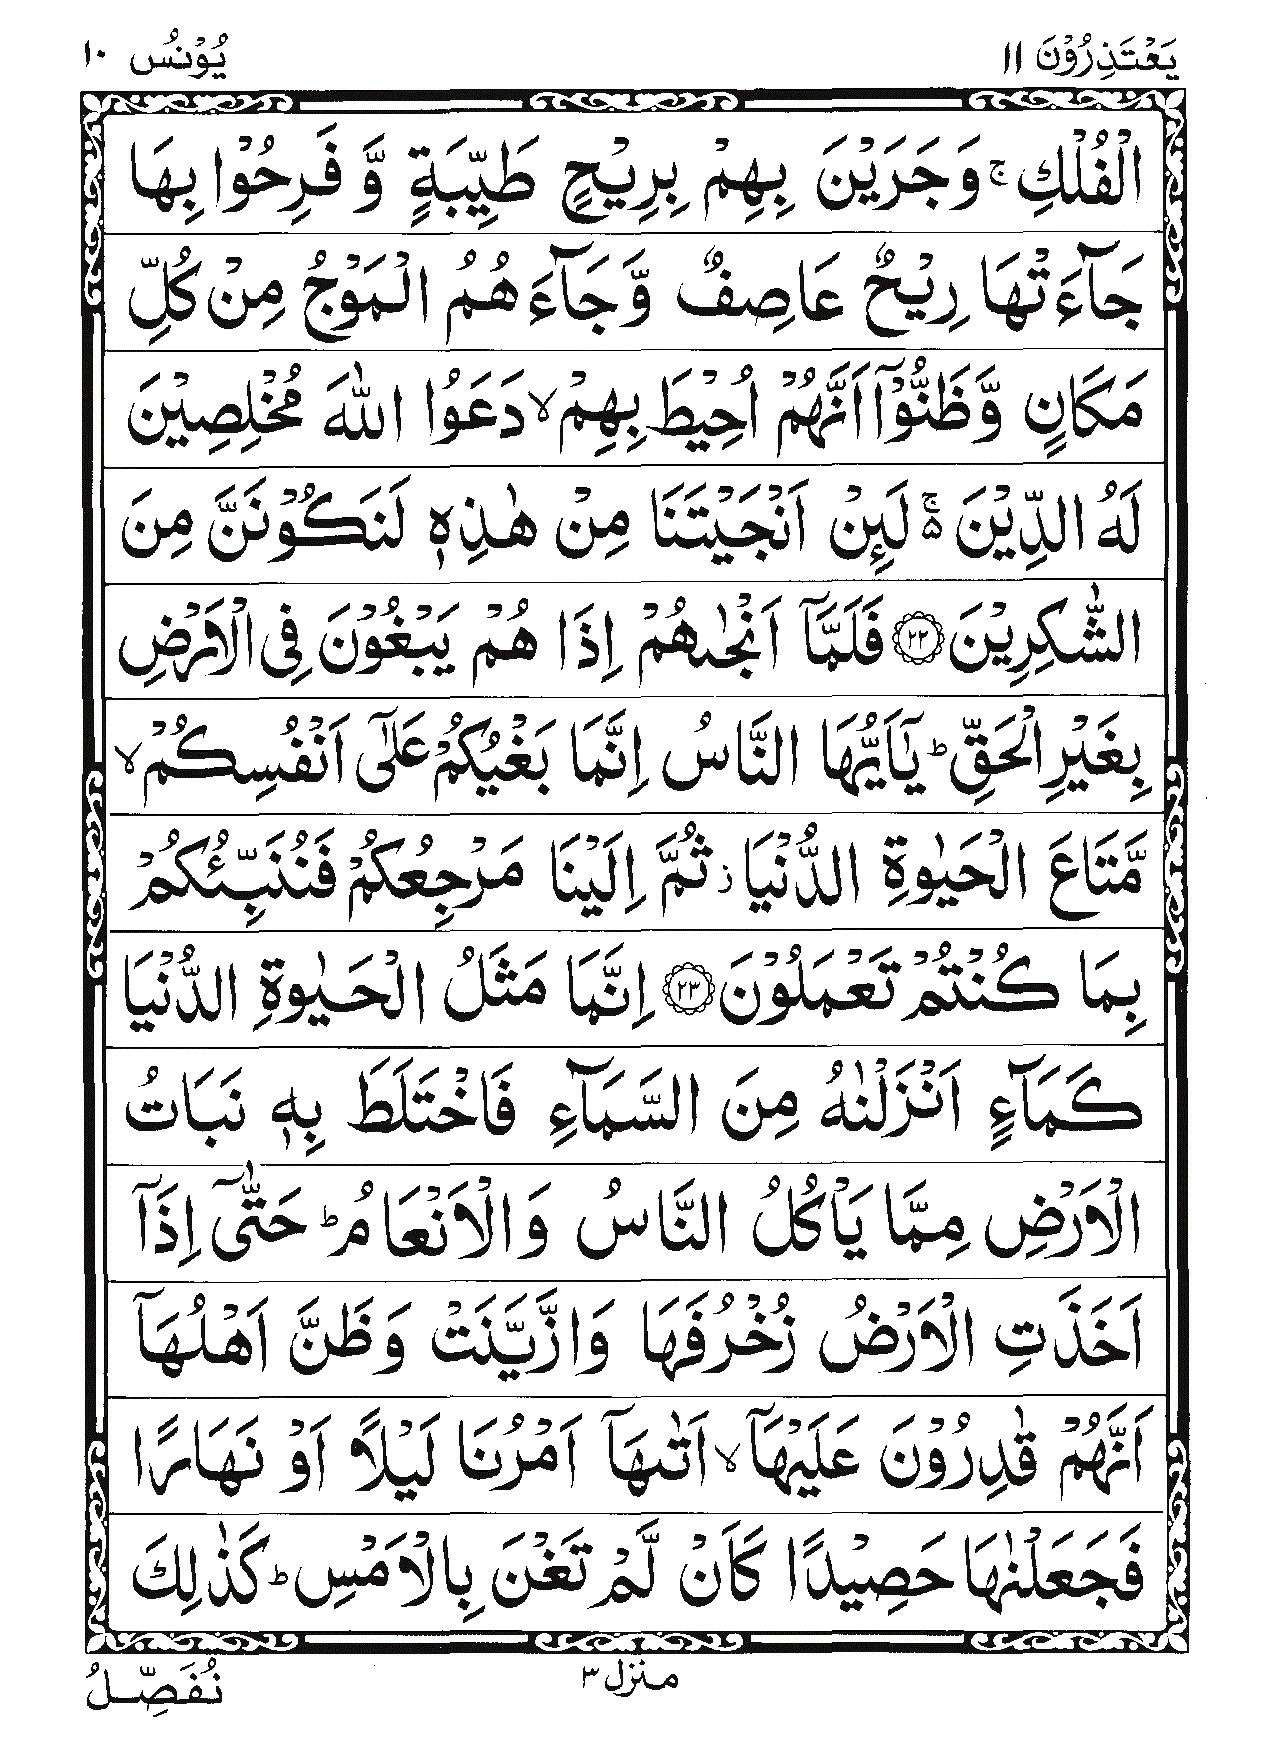 يَعْتَذِرُوْنَ ۱۱
يُوْنُسُ ۱۰
الْفُلْكِ ۚ وَجَرَيْنَ بِهِمْ بِرِيْحٍ طَيِّبَةٍ وَّ فَرِحُوْا بِهَا
جَآءَتْهَا رِيْحٌ عَاصِفٌ وَّجَآءَ هُمُ الْمَوْجُ مِنْ كُلِّ
مَكَانٍ وَّظَنُّوْۤا اَنَّهُمْ اُحِيْطَ بِهِمْ ۙ دَعَوُا اللّٰهَ مُخْلِصِيْنَ
لَهُ الدِّيْنَ ۚ۬ لَىِٕنْ اَنْجَيْتَنَا مِنْ هٰذِهٖ لَنَكُوْنَنَّ مِنَ
الشّٰكِرِيْنَ ۝۲۲ فَلَمَّاۤ اَنْجٰىهُمْ اِذَا هُمْ يَبْغُوْنَ فِى الْاَرْضِ
بِغَيْرِ الْحَقِّ ؕ يٰۤاَيُّهَا النَّاسُ اِنَّمَا بَغْيُكُمْ عَلٰۤى اَنْفُسِكُمْ ۙ
مَّتَاعَ الْحَيٰوةِ الدُّنْيَا ز ثُمَّ اِلَيْنَا مَرْجِعُكُمْ فَنُنَبِّئُكُمْ
بِمَا كُنْتُمْ تَعْمَلُوْنَ ۝۲۳ اِنَّمَا مَثَلُ الْحَيٰوةِ الدُّنْيَا
كَمَآءٍ اَنْزَلْنٰهُ مِنَ السَّمَآءِ فَاخْتَلَطَ بِهٖ نَبَاتُ
الْاَرْضِ مِمَّا يَاْكُلُ النَّاسُ وَالْاَنْعَامُ ؕ حَتّٰۤى اِذَاۤ
اَخَذَتِ الْاَرْضُ زُخْرُفَهَا وَازَّيَّنَتْ وَظَنَّ اَهْلُهَاۤ
اَنَّهُمْ قٰدِرُوْنَ عَلَيْهَاۤ ۙ اَتٰىهَاۤ اَمْرُنَا لَيْلًا اَوْ نَهَارًا
فَجَعَلْنٰهَا حَصِيْدًا كَاَنْ لَّمْ تَغْنَ بِالْاَمْسِ ؕ كَذٰلِكَ
منزل ۳
نُفَصِّلُ